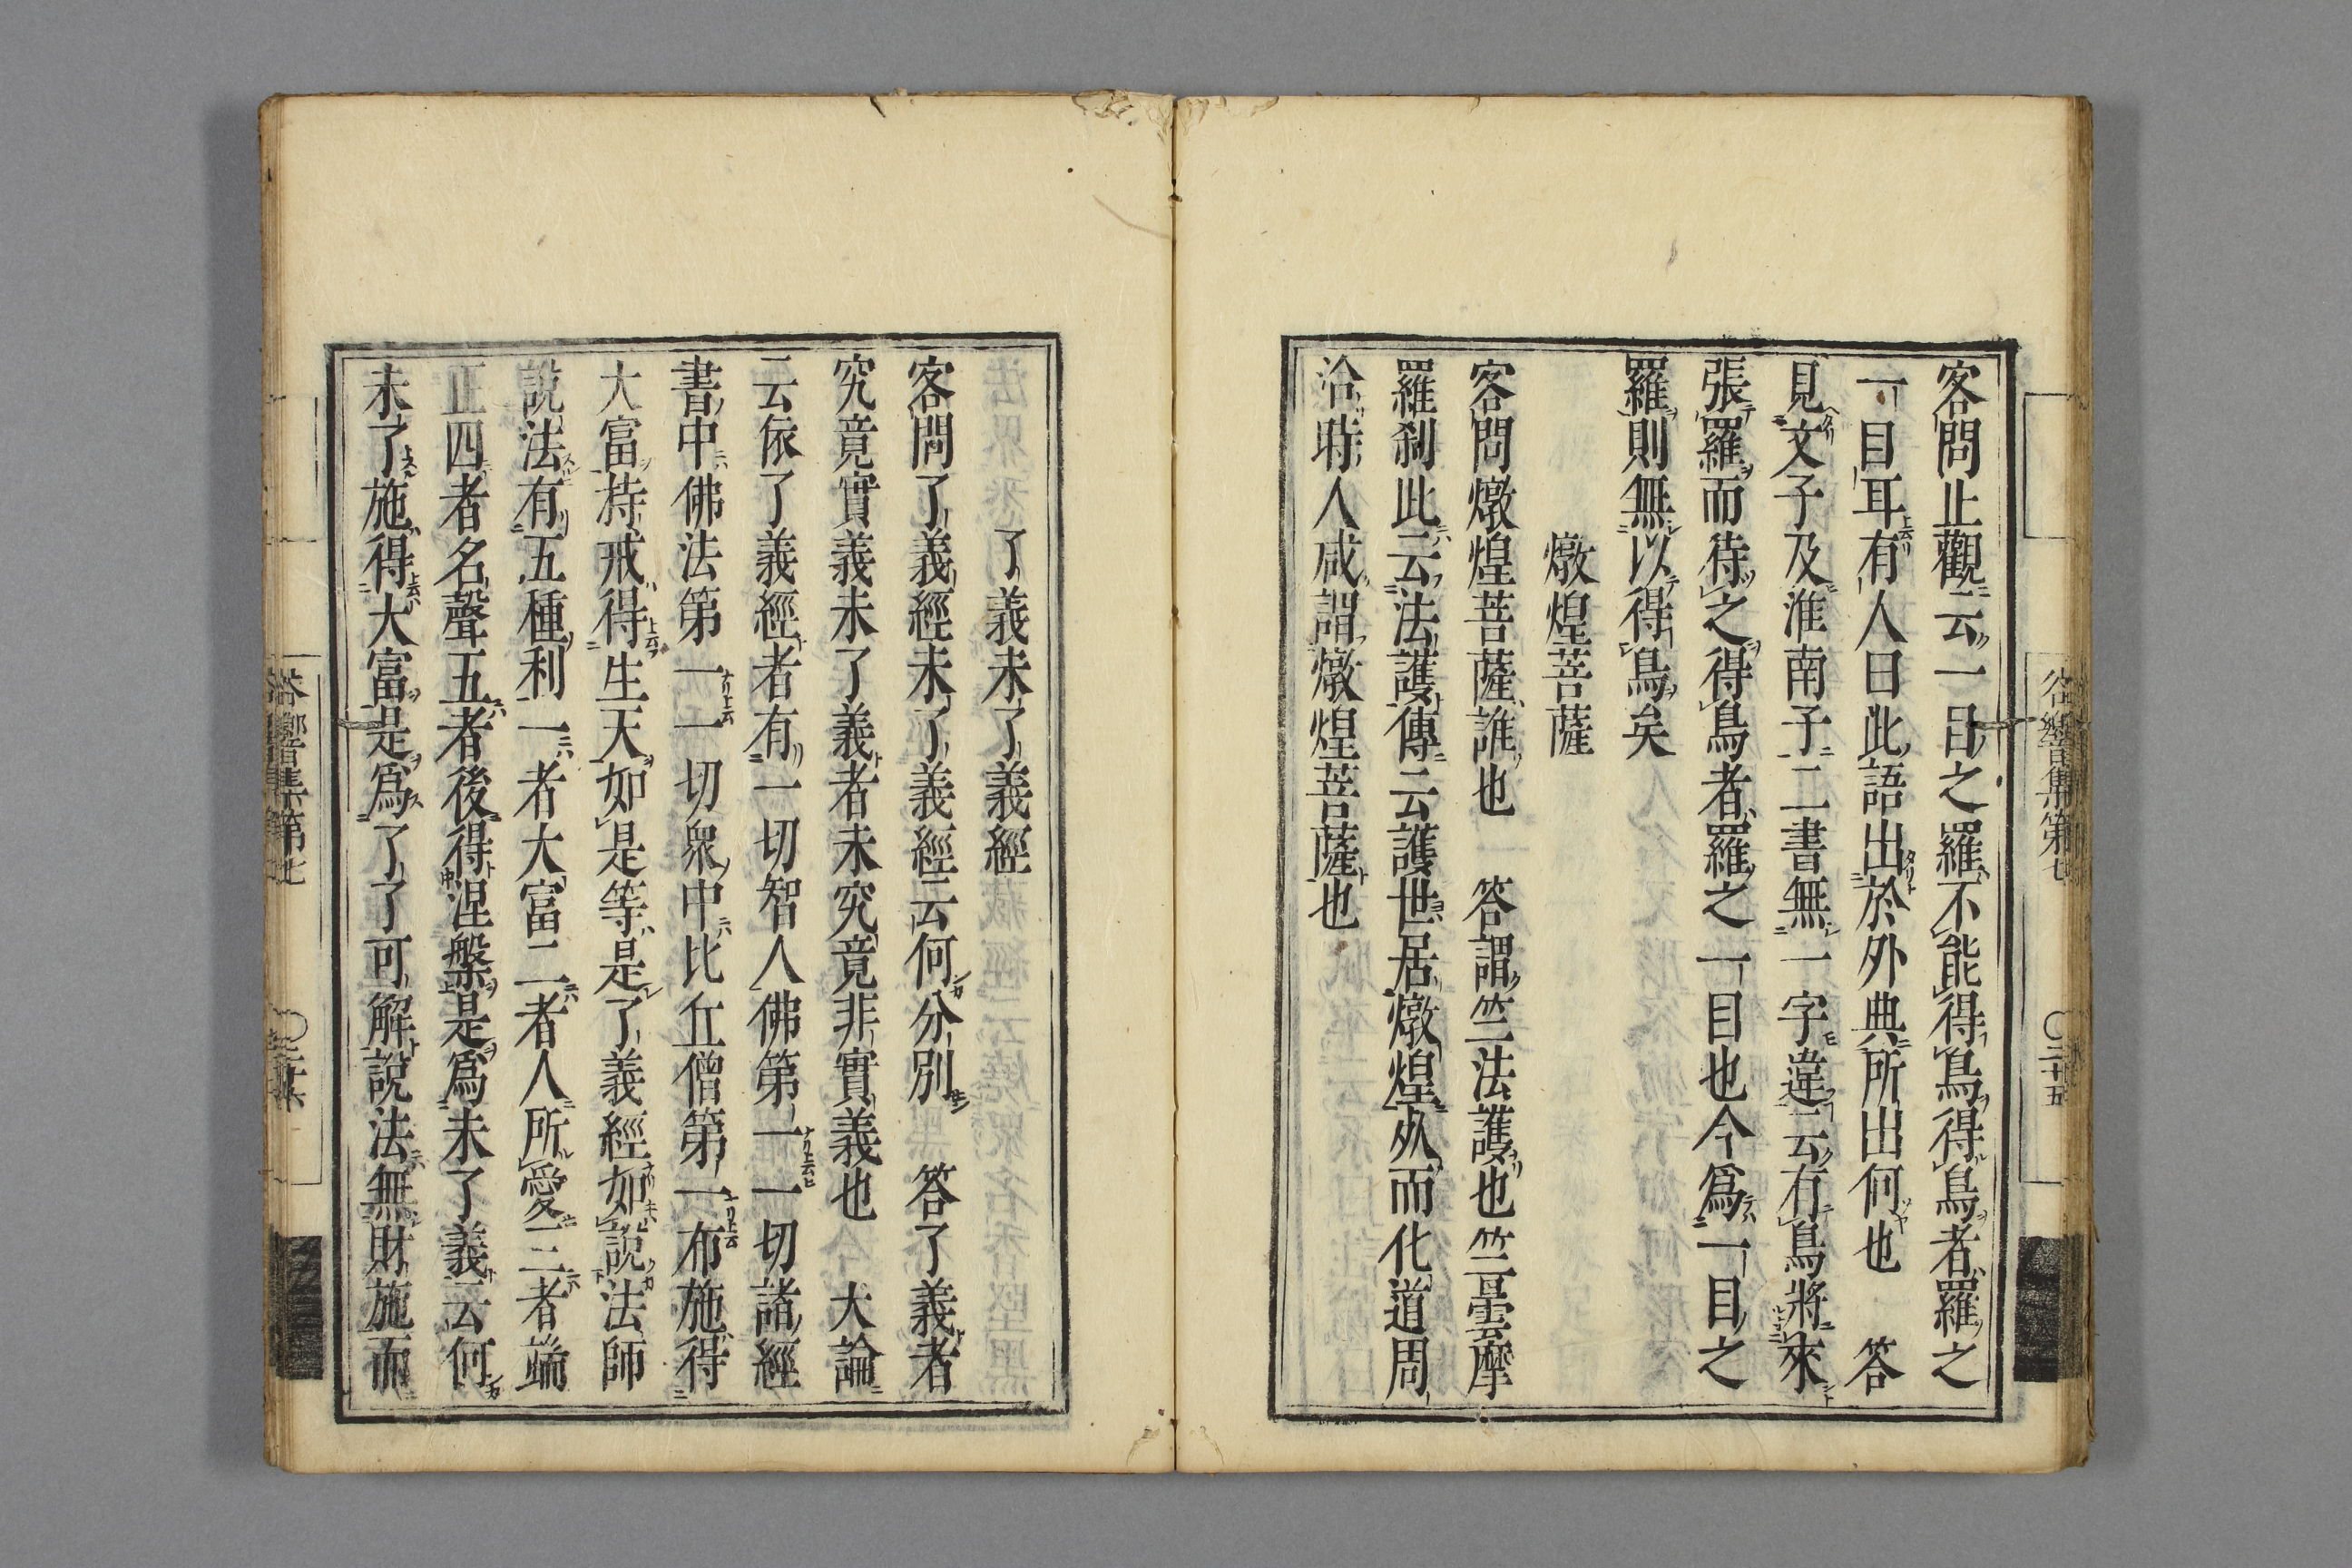 客問止觀云一日之羅不能得鳥得鳥者羅之
一目耳有人曰此語出於外典所出何也　答
見文子及淮南子二書無一字違云有鳥將來
張羅而待之得鳥者羅之一目也今爲一目之
羅則無以得鳥矣
燉煌菩薩
客問燉煌菩薩誰也　答謂竺法護也竺曇摩
羅刹此云法護傳云護世居燉煌處而化道周
洽時人咸謂燉煌菩薩也
谷響集第七　〇二十五
了義未了義經
客問了義經未了義經云何分別　答了義者
究竟實義未了義者未究竟非實義也　大論
云依了義經者有一切智人佛第一一切諸經
書中佛法第一一切衆中比丘僧第一布施得
大富持戒得生天如是等是了義經如說法師
說法有五種利一者大富二者人所愛三者端
正四者名聲五者後得涅槃是爲未了義云何
未了施得大富是爲了了可解說法無財施而
谷響集第七　〇